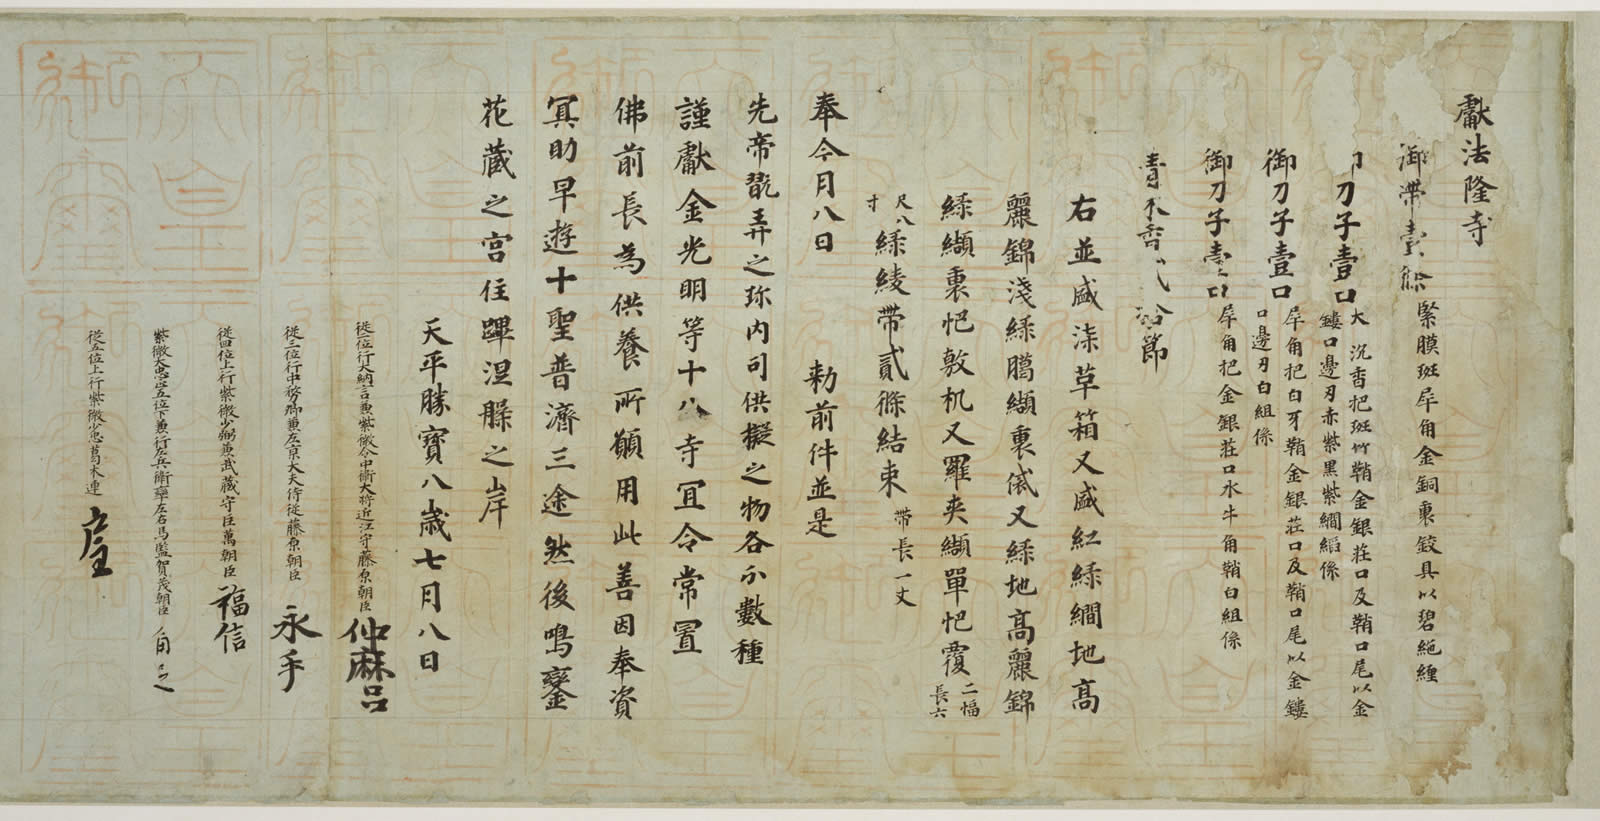 獻法隆寺
御帶壹條 緊膜斑犀角金銅裏鉸具以碧絁纏
刀子壹口 大沉香把斑竹鞘金銀莊口及鞘口尾以金
鏤口邊刃赤紫黑紫繝縚係
御刀子壹口 犀角把白牙鞘金銀莊口及鞘口尾以金鏤
口邊刃白組係
御刀子壹口 犀角把金銀莊口水牛角鞘白組係
青木香 拾節
右並盛柒草箱又盛紅綠繝地高
麗錦淺綠臈纈裏俿又綠地高麗錦
綠纈裏帊敷机又羅夾纈單帊覆 二幅
長六
尺八
寸 綠綾帶貳條結束 帶長一丈
奉今月八日 勅前件並是
先帝翫弄之珎內司供擬之物各分數種
謹獻金光明等十八寺冝令常置
佛前長為供養所願用此善因奉資
冥助早遊十聖普濟三途然後鳴鑾
花藏之宮住蹕涅槃之岸
天平勝寶八歲七月八日
從二位行大納言兼紫微令中衛大將近江守藤原朝臣 仲麻呂
從三位行中務卿兼左京大夫侍從藤原朝臣 永手
從四位上行紫微少弼兼武藏守臣萬朝臣 福信
紫微大忠正五位下兼行左兵衛率左右馬監賀茂朝臣 角足
從五位上行紫微少忠葛木連 戶主
天皇御璽